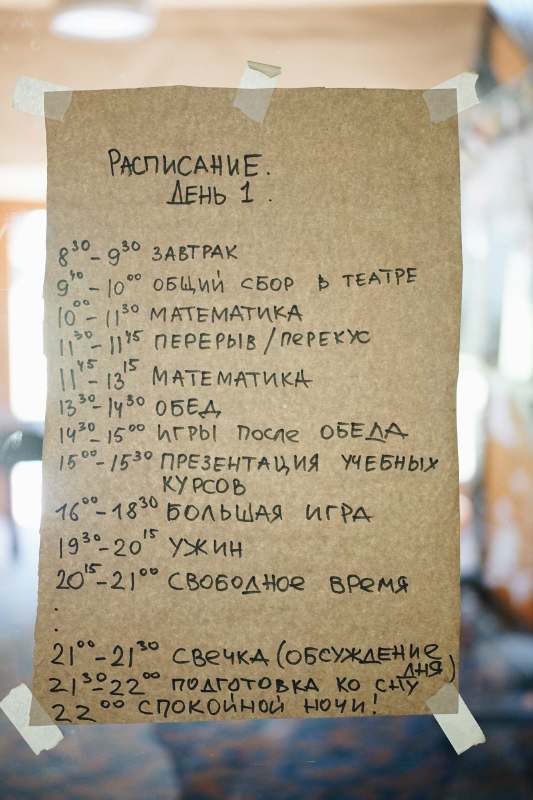 РАСПИСАНИЕ.
ДЕНЬ 1.
8³⁰-9³⁰ ЗАВТРАК
9⁴⁰-10⁰⁰ ОБЩИЙ СБОР В ТЕАТРЕ
10⁰⁰-11³⁰ МАТЕМАТИКА
11³⁰-11⁴⁵ ПЕРЕРЫВ/ПЕРЕКУС
11⁴⁵-13¹⁵ МАТЕМАТИКА
13³⁰-14³⁰ ОБЕД
14³⁰-15⁰⁰ ИГРЫ ПОСЛЕ ОБЕДА
15⁰⁰-15³⁰ ПРЕЗЕНТАЦИЯ УЧЕБНЫХ
КУРСОВ
16⁰⁰-18³⁰ БОЛЬШАЯ ИГРА
19³⁰-20¹⁵ УЖИН
20¹⁵-21⁰⁰ СВОБОДНОЕ ВРЕМЯ
.
.
21⁰⁰-21³⁰ СВЕЧКА (ОБСУЖДЕНИЕ
ДНЯ)
21³⁰-22⁰⁰ ПОДГОТОВКА КО СНУ
22⁰⁰ СПОКОЙНОЙ НОЧИ!